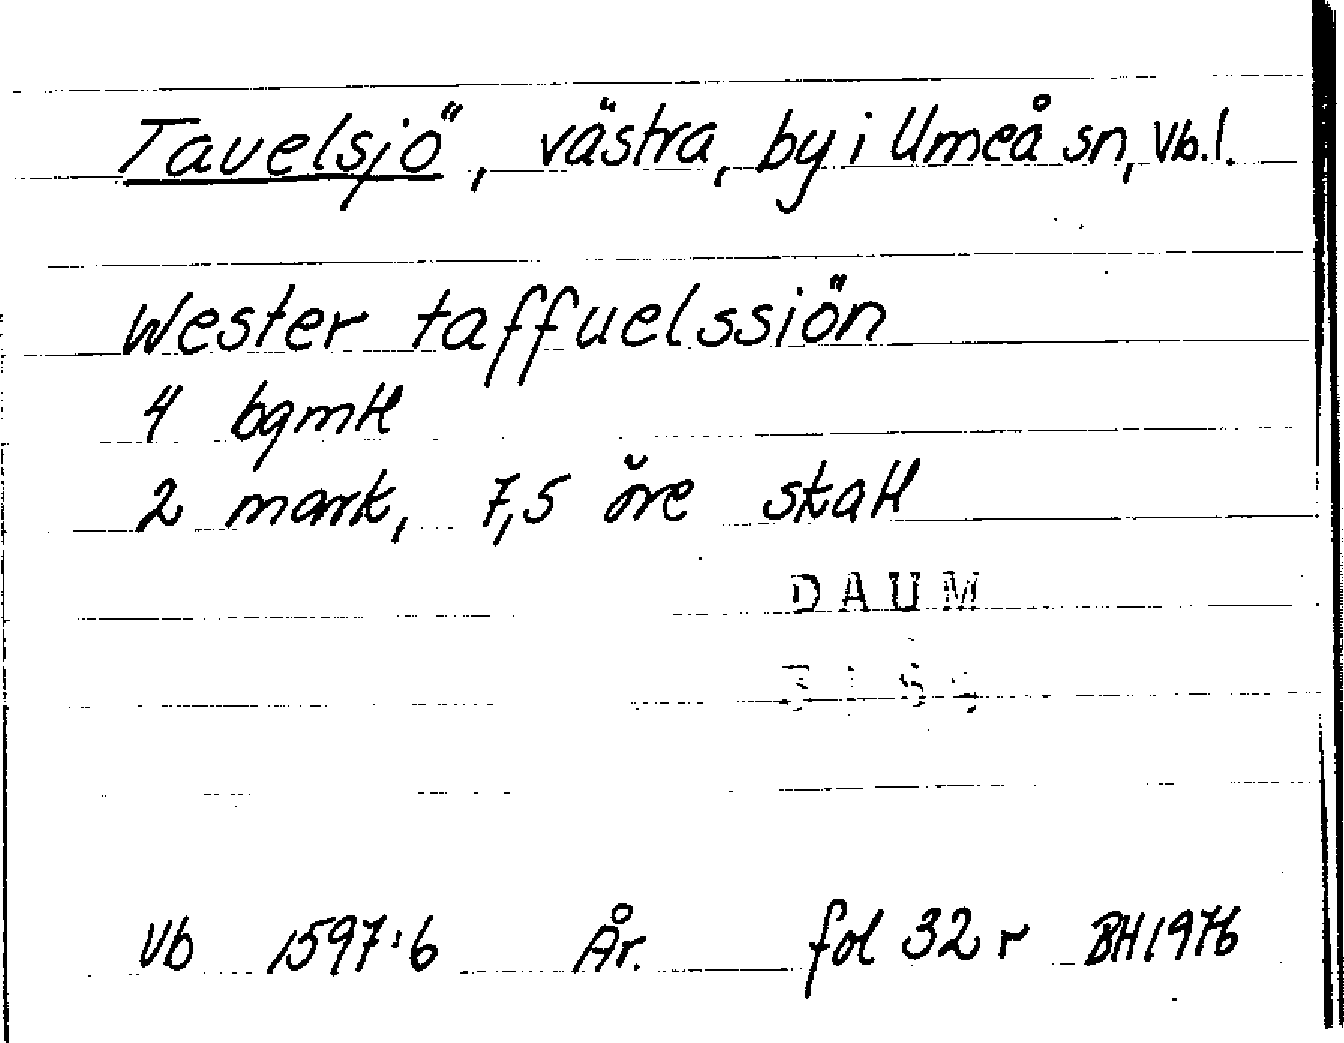 Tavelsjö, västra, by i Umeå sn, Vb.l.
Wester taffuelssiön
4 bgmtl
2 mark, 7,5 öre skatt
DAUM
Vb 1597:6 År. fol 32 r BH 1976